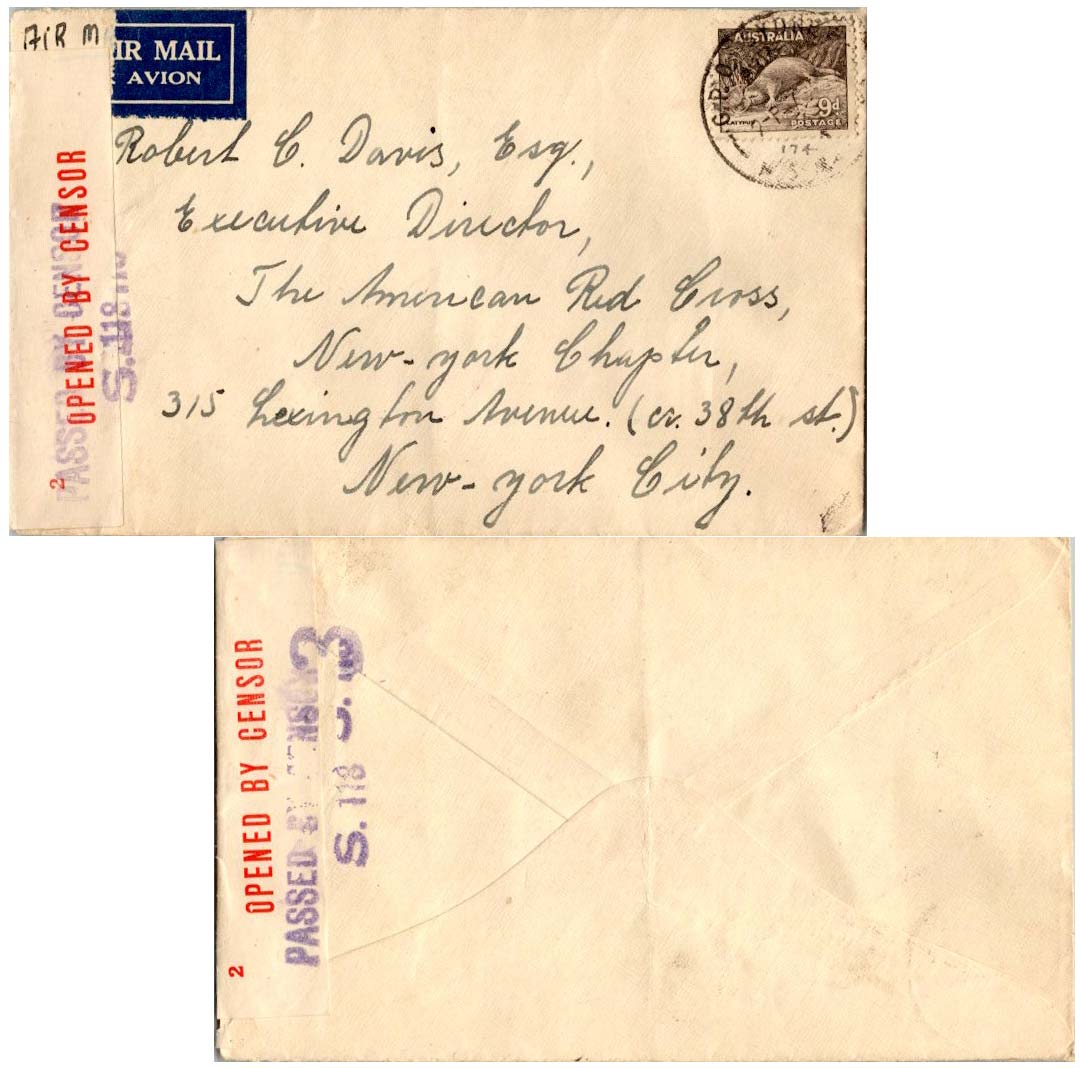 AIR M
IR MAIL
AVION
AUSTRALIA
9d
POSTAGE
174
N.S.W
Robert C. Davis, Esq.,
Executive Director,
The American Red Cross,
New-york Chapter,
315 Lexington Avenue. (cr. 38th st.)
New-york City.
2 OPENED BY CENSOR
PASSED BY CENSOR
S. 118
2 OPENED BY CENSOR
PASSED BY CENSOR
3
S. 118